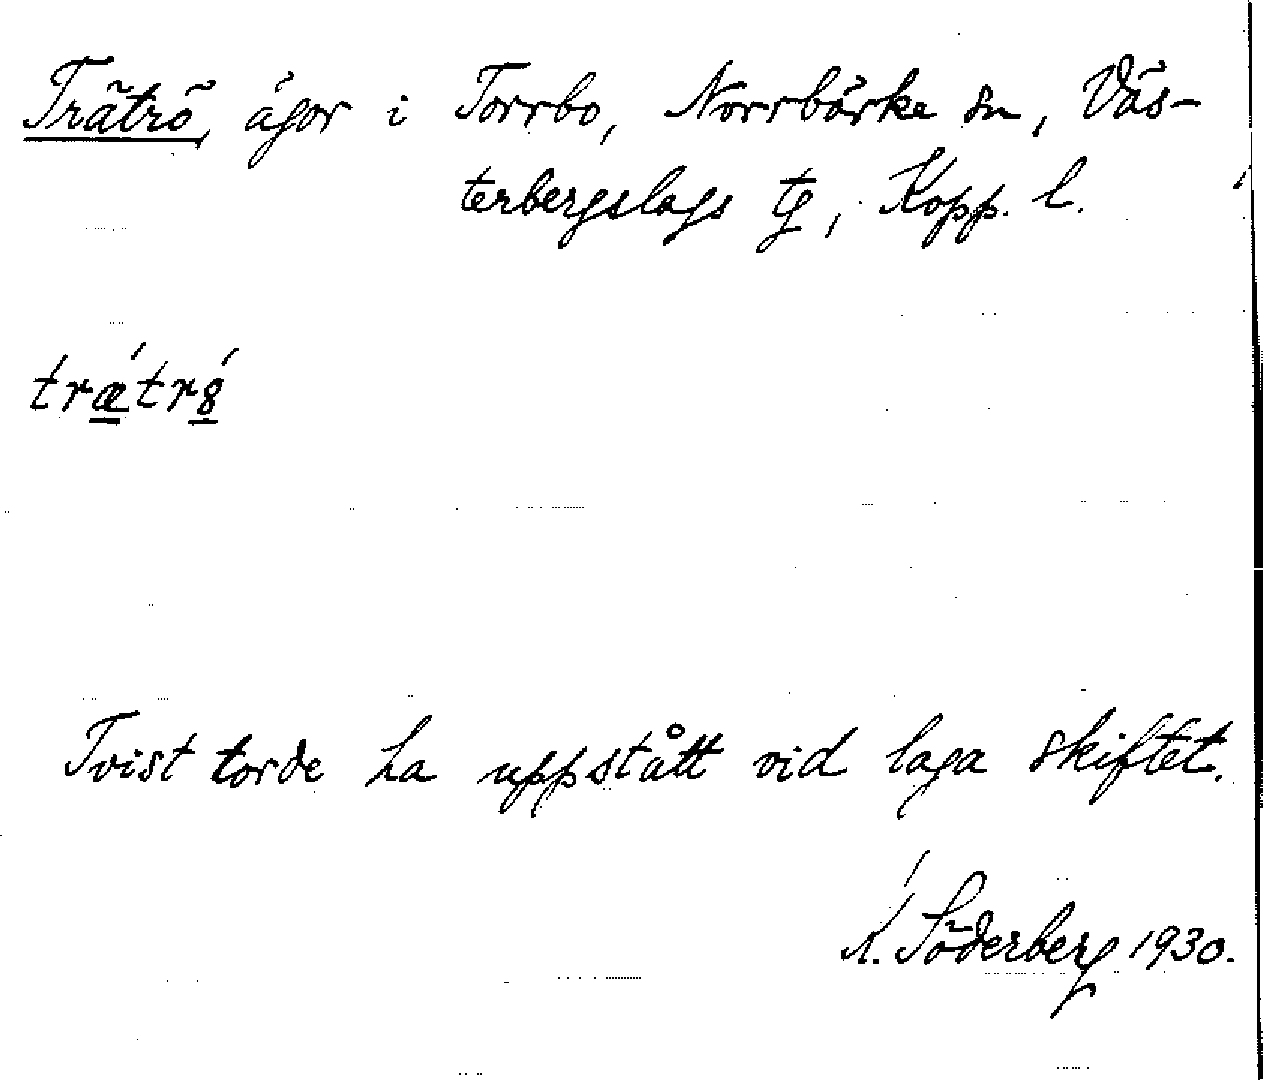 Trätrö, ägor i Torrbo, Norrbärke sn, Väs-
terbergslags tg, Kopp. l.
træ´trö´
Tvist torde ha uppstått vid laga skiftet.
K. Söderberg 1930.